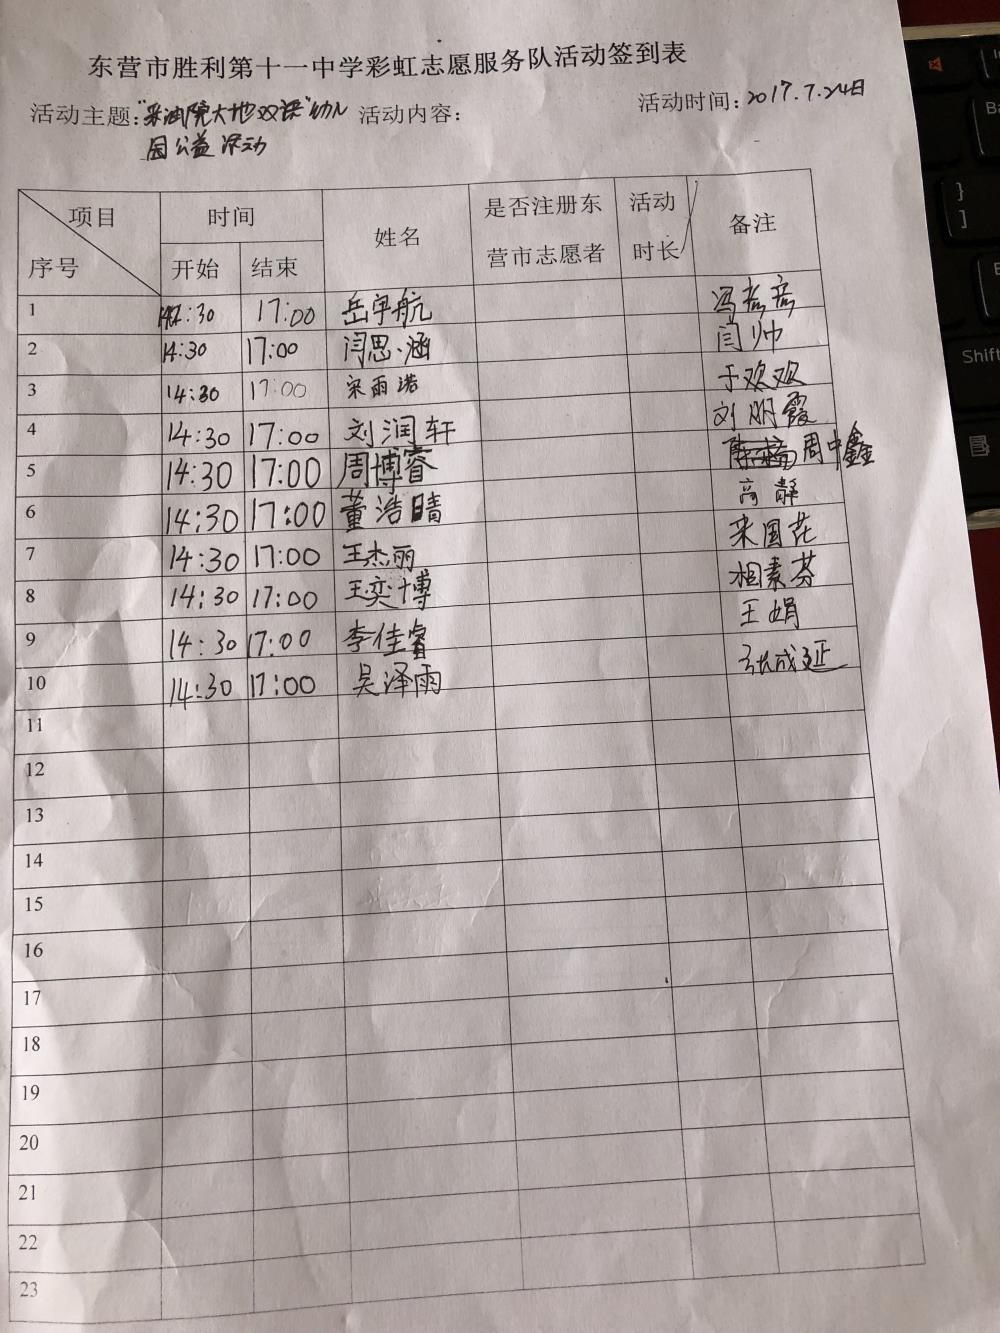 东营市胜利第十一中学彩虹志愿服务队活动签到表
活动主题："采油院大地双语"幼儿 活动内容： 活动时间：2017.7.24日
园公益活动
项目 时间 姓名 是否注册东 活动 备注
序号 开始 结束 营市志愿者 时长
1 :30 17:00 岳宇航 冯
2 14:30 17:00 闫思涵 闫帅
3 14:30 17:00 宋雨诺 于欢欢
4 14:30 17:00 刘润轩 刘明霞
5 14:30 17:00 周博睿 周中鑫
6 14:30 17:00 董浩晴 高静
7 14:30 17:00 王杰丽 来国花
8 14:30 17:00 王奕博 相素芬
9 14:30 17:00 李佳睿 王娟
10 14:30 17:00 吴泽雨 张成延
11
12
13
14
15
16
17
18
19
20
21
22
23
}
]
Shift